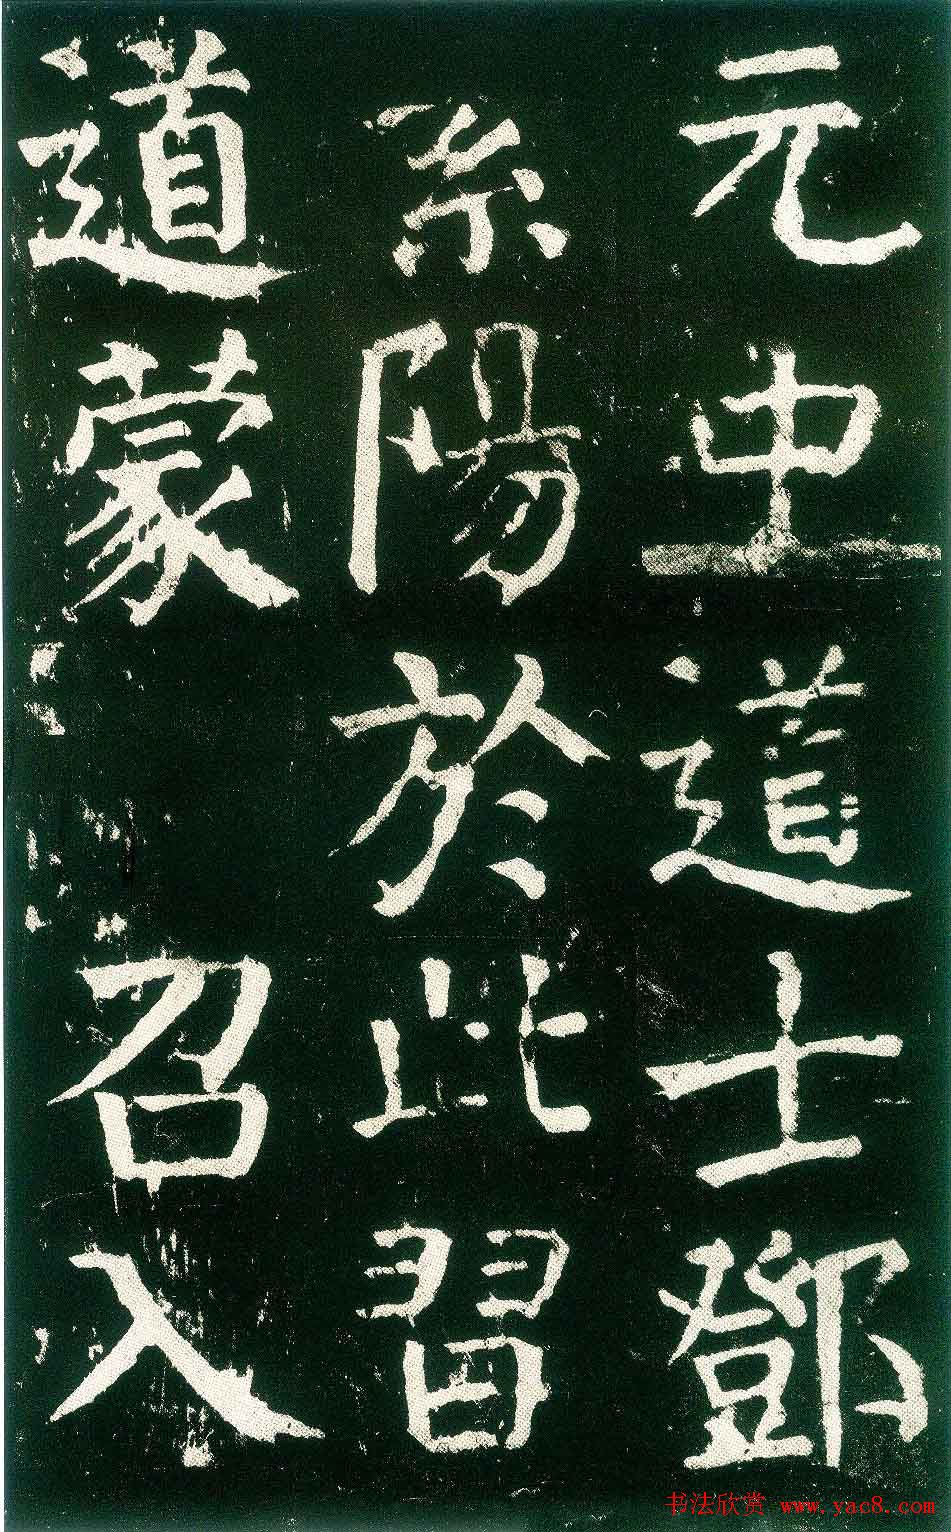 元中道士鄧
紫陽於此習
道蒙召入
书法欣赏 www.yac8.com